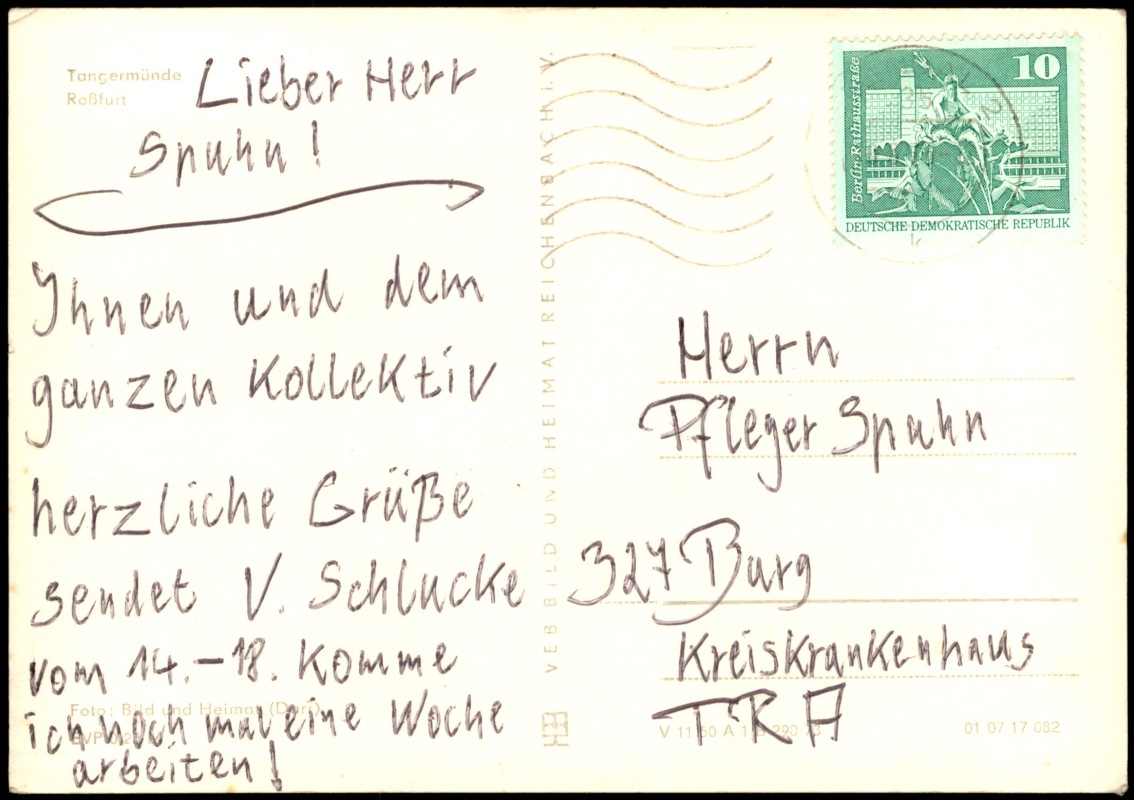 Tangermünde
Roßfurt
Lieber Herr
Spuhn!
Ihnen und dem
ganzen Kollektiv
herzliche Grüße
sendet V. Schlucke
vom 14.-18. Komme
ich noch mal eine Woche
arbeiten!
Foto: Bild und Heimat
VEB BILD UND HEIMAT REICHENBACH I. V.
10
Berlin-Rathausstraße
DEUTSCHE DEMOKRATISCHE REPUBLIK
Herrn
Pfleger Spuhn
327 Burg
Kreiskrankenhaus
TRA
01 07 17 082